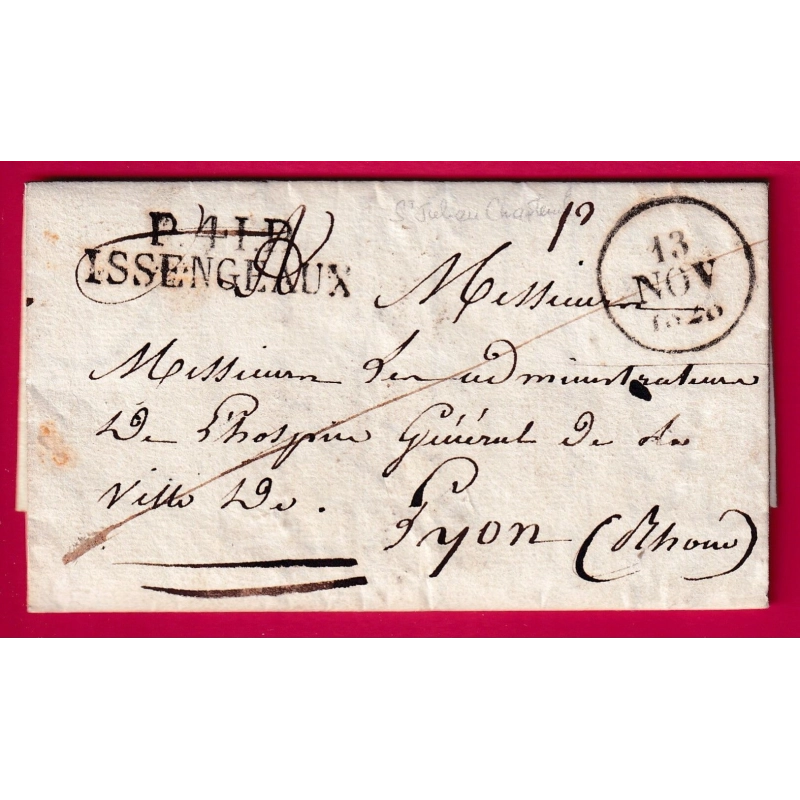 St Julien Chapteuil
P.41.P.
ISSENGEAUX
13
NOV
1828
Messieurs
Messieurs les administrateurs
De l'hospice Général de la
Ville De.
Lyon (Rhone)